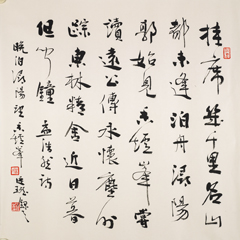 挂席幾千里名山
都未逢泊舟潯陽
郭始見香爐峰嘗
讀遠公傳永懷塵外
蹤東林精舍近日暮
但聞鐘 孟浩然詩
晚泊潯陽望香爐峰